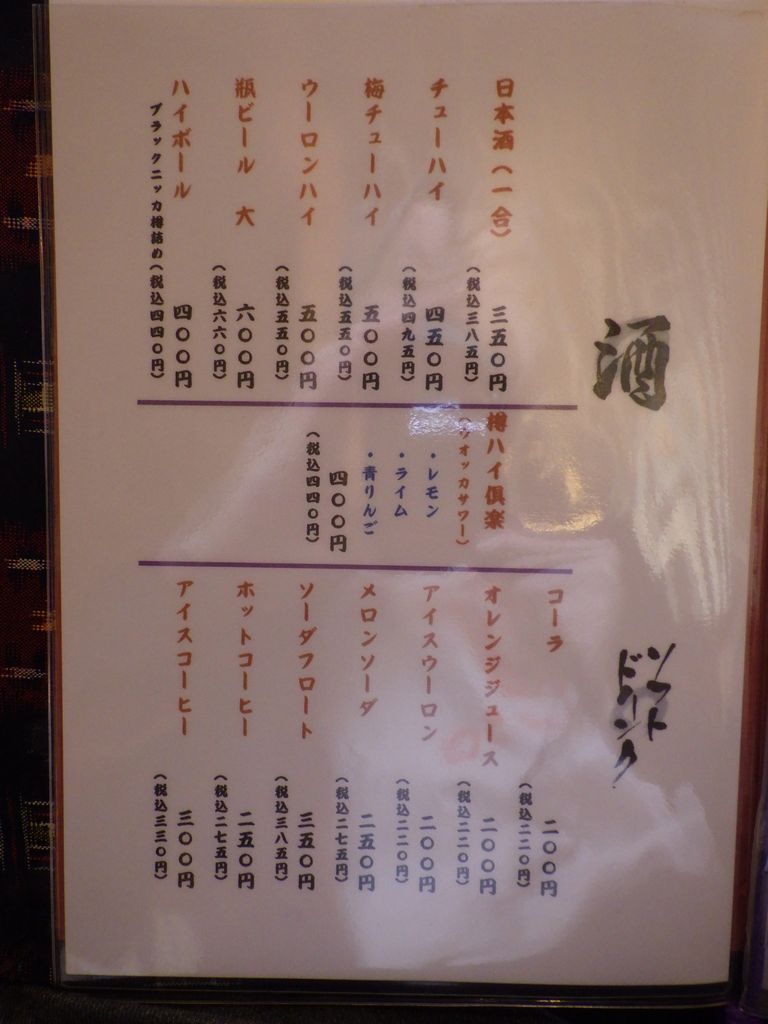 酒
日本酒(一合)
三五〇円
(税込三八五円)
チューハイ
四五〇円
(税込四九五円)
梅チューハイ
五〇〇円
(税込五五〇円)
ウーロンハイ
五〇〇円
(税込五五〇円)
瓶ビール 大
六〇〇円
(税込六六〇円)
ハイボール
四〇〇円
ブラックニッカ樽詰め(税込四四〇円)
樽ハイ倶楽
(ウォッカサワー)
・レモン
・ライム
・青りんご
四〇〇円
(税込四四〇円)
ソフト
ドリンク
コーラ
二〇〇円
(税込二二〇円)
オレンジジュース
二〇〇円
(税込二二〇円)
アイスウーロン
二〇〇円
(税込二二〇円)
メロンソーダ
二五〇円
(税込二七五円)
ソーダフロート
三五〇円
(税込三八五円)
ホットコーヒー
二五〇円
(税込二七五円)
アイスコーヒー
三〇〇円
(税込三三〇円)